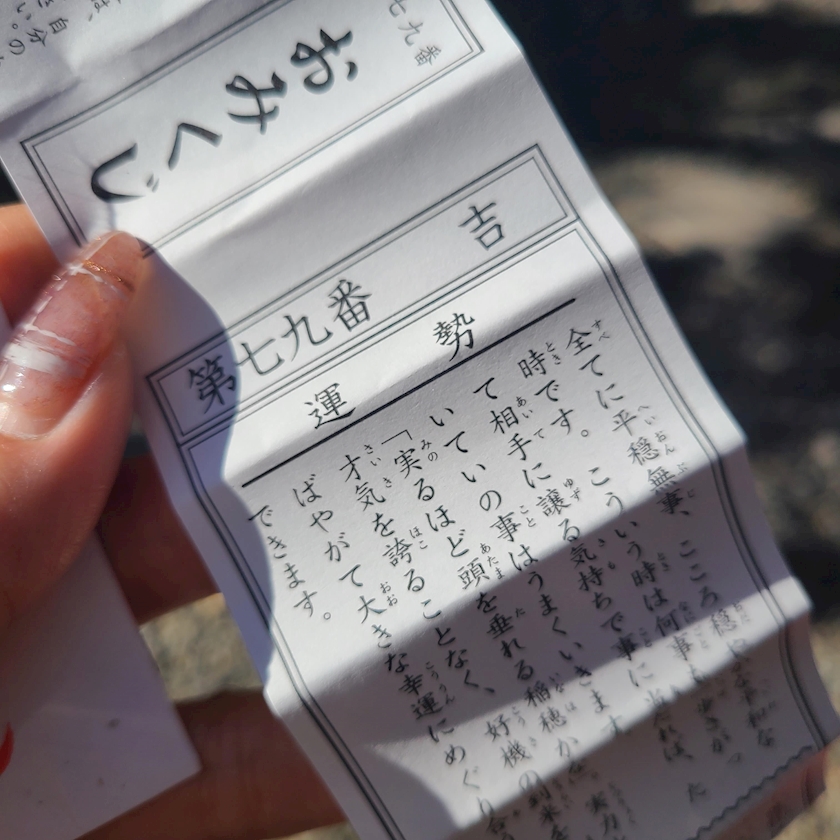 七九番
おみくじ
吉
第七九番
運勢
全てに平穏無事、こころ穏やかな
時です。こういう時は何事も
て相手に譲る気持ちで事に当たれば、た
いていの事はうまくいきます
「実るほど頭を垂れる稲穂かな
才気を誇ることなく、好機の到来を
ばやがて大きな幸運にめぐり
できます。
は、自分の